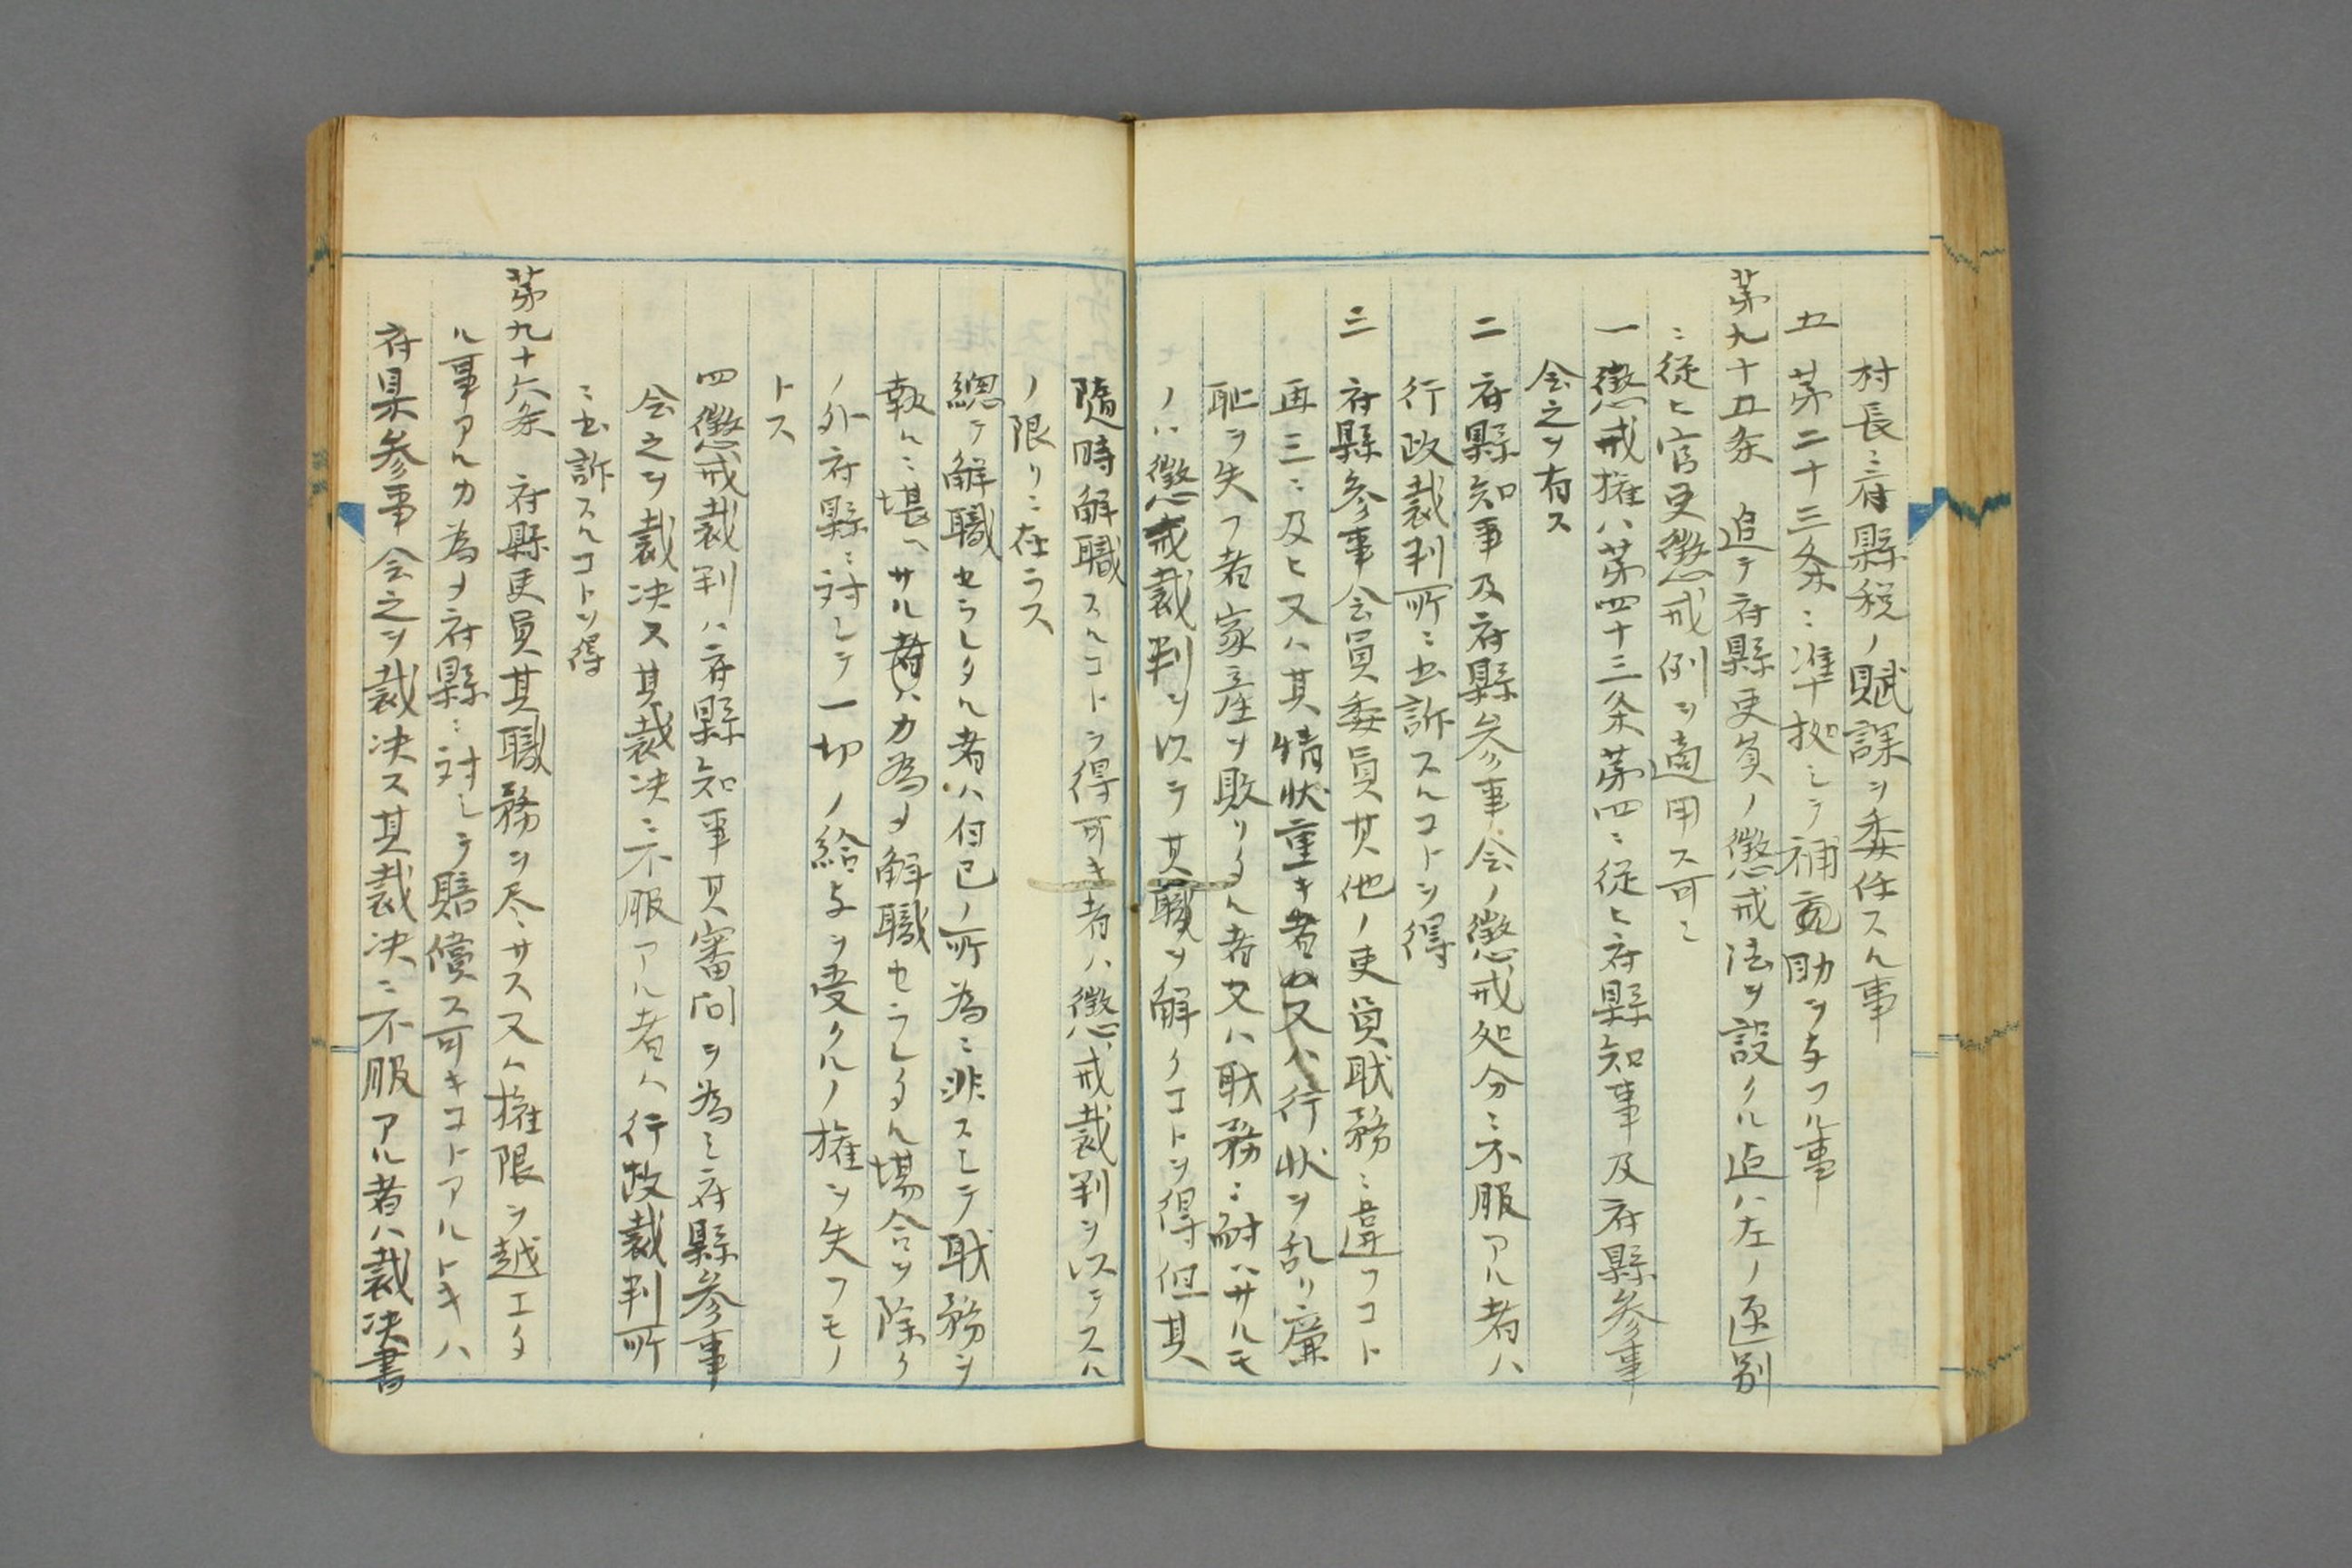 村長ニ府縣税ノ賦課ヲ委任スル事
五 第二十三条ニ準拠シテ補助ヲ与フル事
第九十五条 追テ府縣吏員ノ懲戒法ヲ設クル迄ハ左ノ区別
ニ従ヒ官吏懲戒例ヲ適用ス可シ
一 懲戒権ハ第四十三条第四ニ従ヒ府縣知事及府縣参事
会之ヲ有ス
二 府縣知事及府縣参事会ノ懲戒処分ニ不服アル者ハ
行政裁判所ニ出訴スルコトヲ得
三 府縣参事会員委員其他ノ吏員職務ニ違フコト
再三ニ及ヒ又ハ其情状重キ者又ハ行状ヲ乱リ廉
恥ヲ失フ者家産ヲ敗リタル者又ハ職務ニ耐ヘサルモ
ノハ懲戒裁判ヲ以テ其職ヲ解クコトヲ得但其
随時解職スルコトヲ得可キ者ハ懲戒裁判ヲ以テスル
ノ限リニ在ラス
總テ解職セラレタル者ハ自己ノ所為ニ非スシテ職務ヲ
執ルニ堪ヘサルカ為メ解職セラレタル場合ヲ除ク
ノ外府縣ニ対シテ一切ノ給与ヲ受クルノ権ヲ失フモノ
トス
四 懲戒裁判ハ府縣知事其審問ヲ為シ府縣参事
会之ヲ裁决ス其裁决ニ不服アル者ハ行政裁判所
ニ出訴スルコトヲ得
第九十六条 府縣吏員其職務ヲ尽サス又ハ権限ヲ越エタ
ル事アルカ為メ府縣ニ対シテ賠償ス可キコトアルトキハ
府県参事会之ヲ裁决ス其裁决ニ不服アル者ハ裁决書